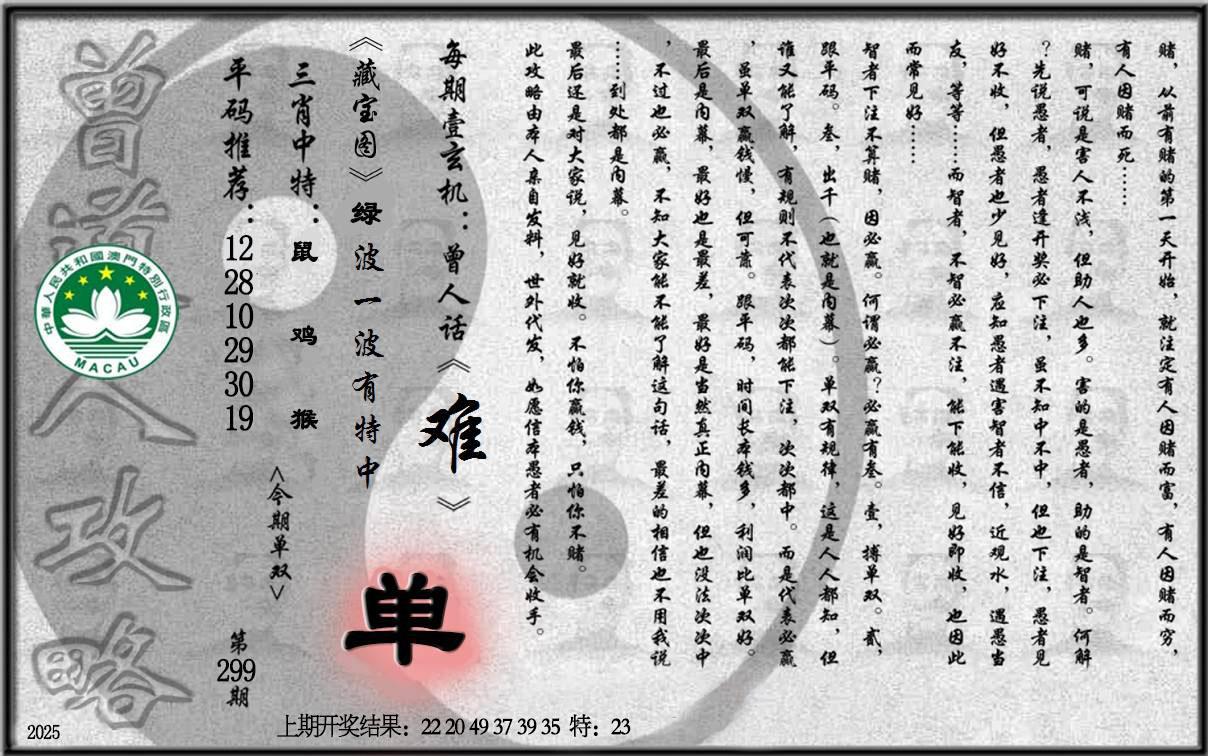 赌，从前有赌的第一天开始，就注定有人因赌而富，有人因赌而穷，
有人因赌而死……
赌，可说是害人不浅，但助人也多。害的是愚者，助的是智者。何解
？先说愚者，愚者逢开奖必下注，虽不知中不中，但也下注，愚者见
好不收，但愚者也少见好，应知愚者遇害智者不信，近观水，遇愚当
友，等等……而智者，不智必赢不注，能下能收，见好即收，也因此
而常见好……
智者下注不算赌，因必赢。何谓必赢？必赢有叁。壹，搏单双。贰，
跟平码。叁，出千（也就是内幕）。单双有规律，这是人人都知，但
谁又能了解，有规则不代表次次都能下注，次次都中。而是代表必赢
，虽单双赢钱慢，但可靠。跟平码，时间长本钱多，利润比单双好。
最后是内幕，最好也是最差，最好是当然真正内幕，但也没法次次中
，不过也必赢，不知大家能不能了解这句话，最差的相信也不用我说
……到处都是内幕。
最后还是对大家说，见好就收。不怕你赢钱，只怕你不赌。
此攻略由本人亲自发料，世外代发，如愿信本愚者必有机会收手。
每期壹玄机：曾人话《难》
《藏宝图》绿波一波有特中
单
三肖中特：鼠 鸡 猴
<今期单双>
平码推荐：12 28 10 29 30 19
第299期
曾道人攻略
中華人民共和國澳門特別行政區
MACAU
2025
上期开奖结果：22 20 49 37 39 35 特：23